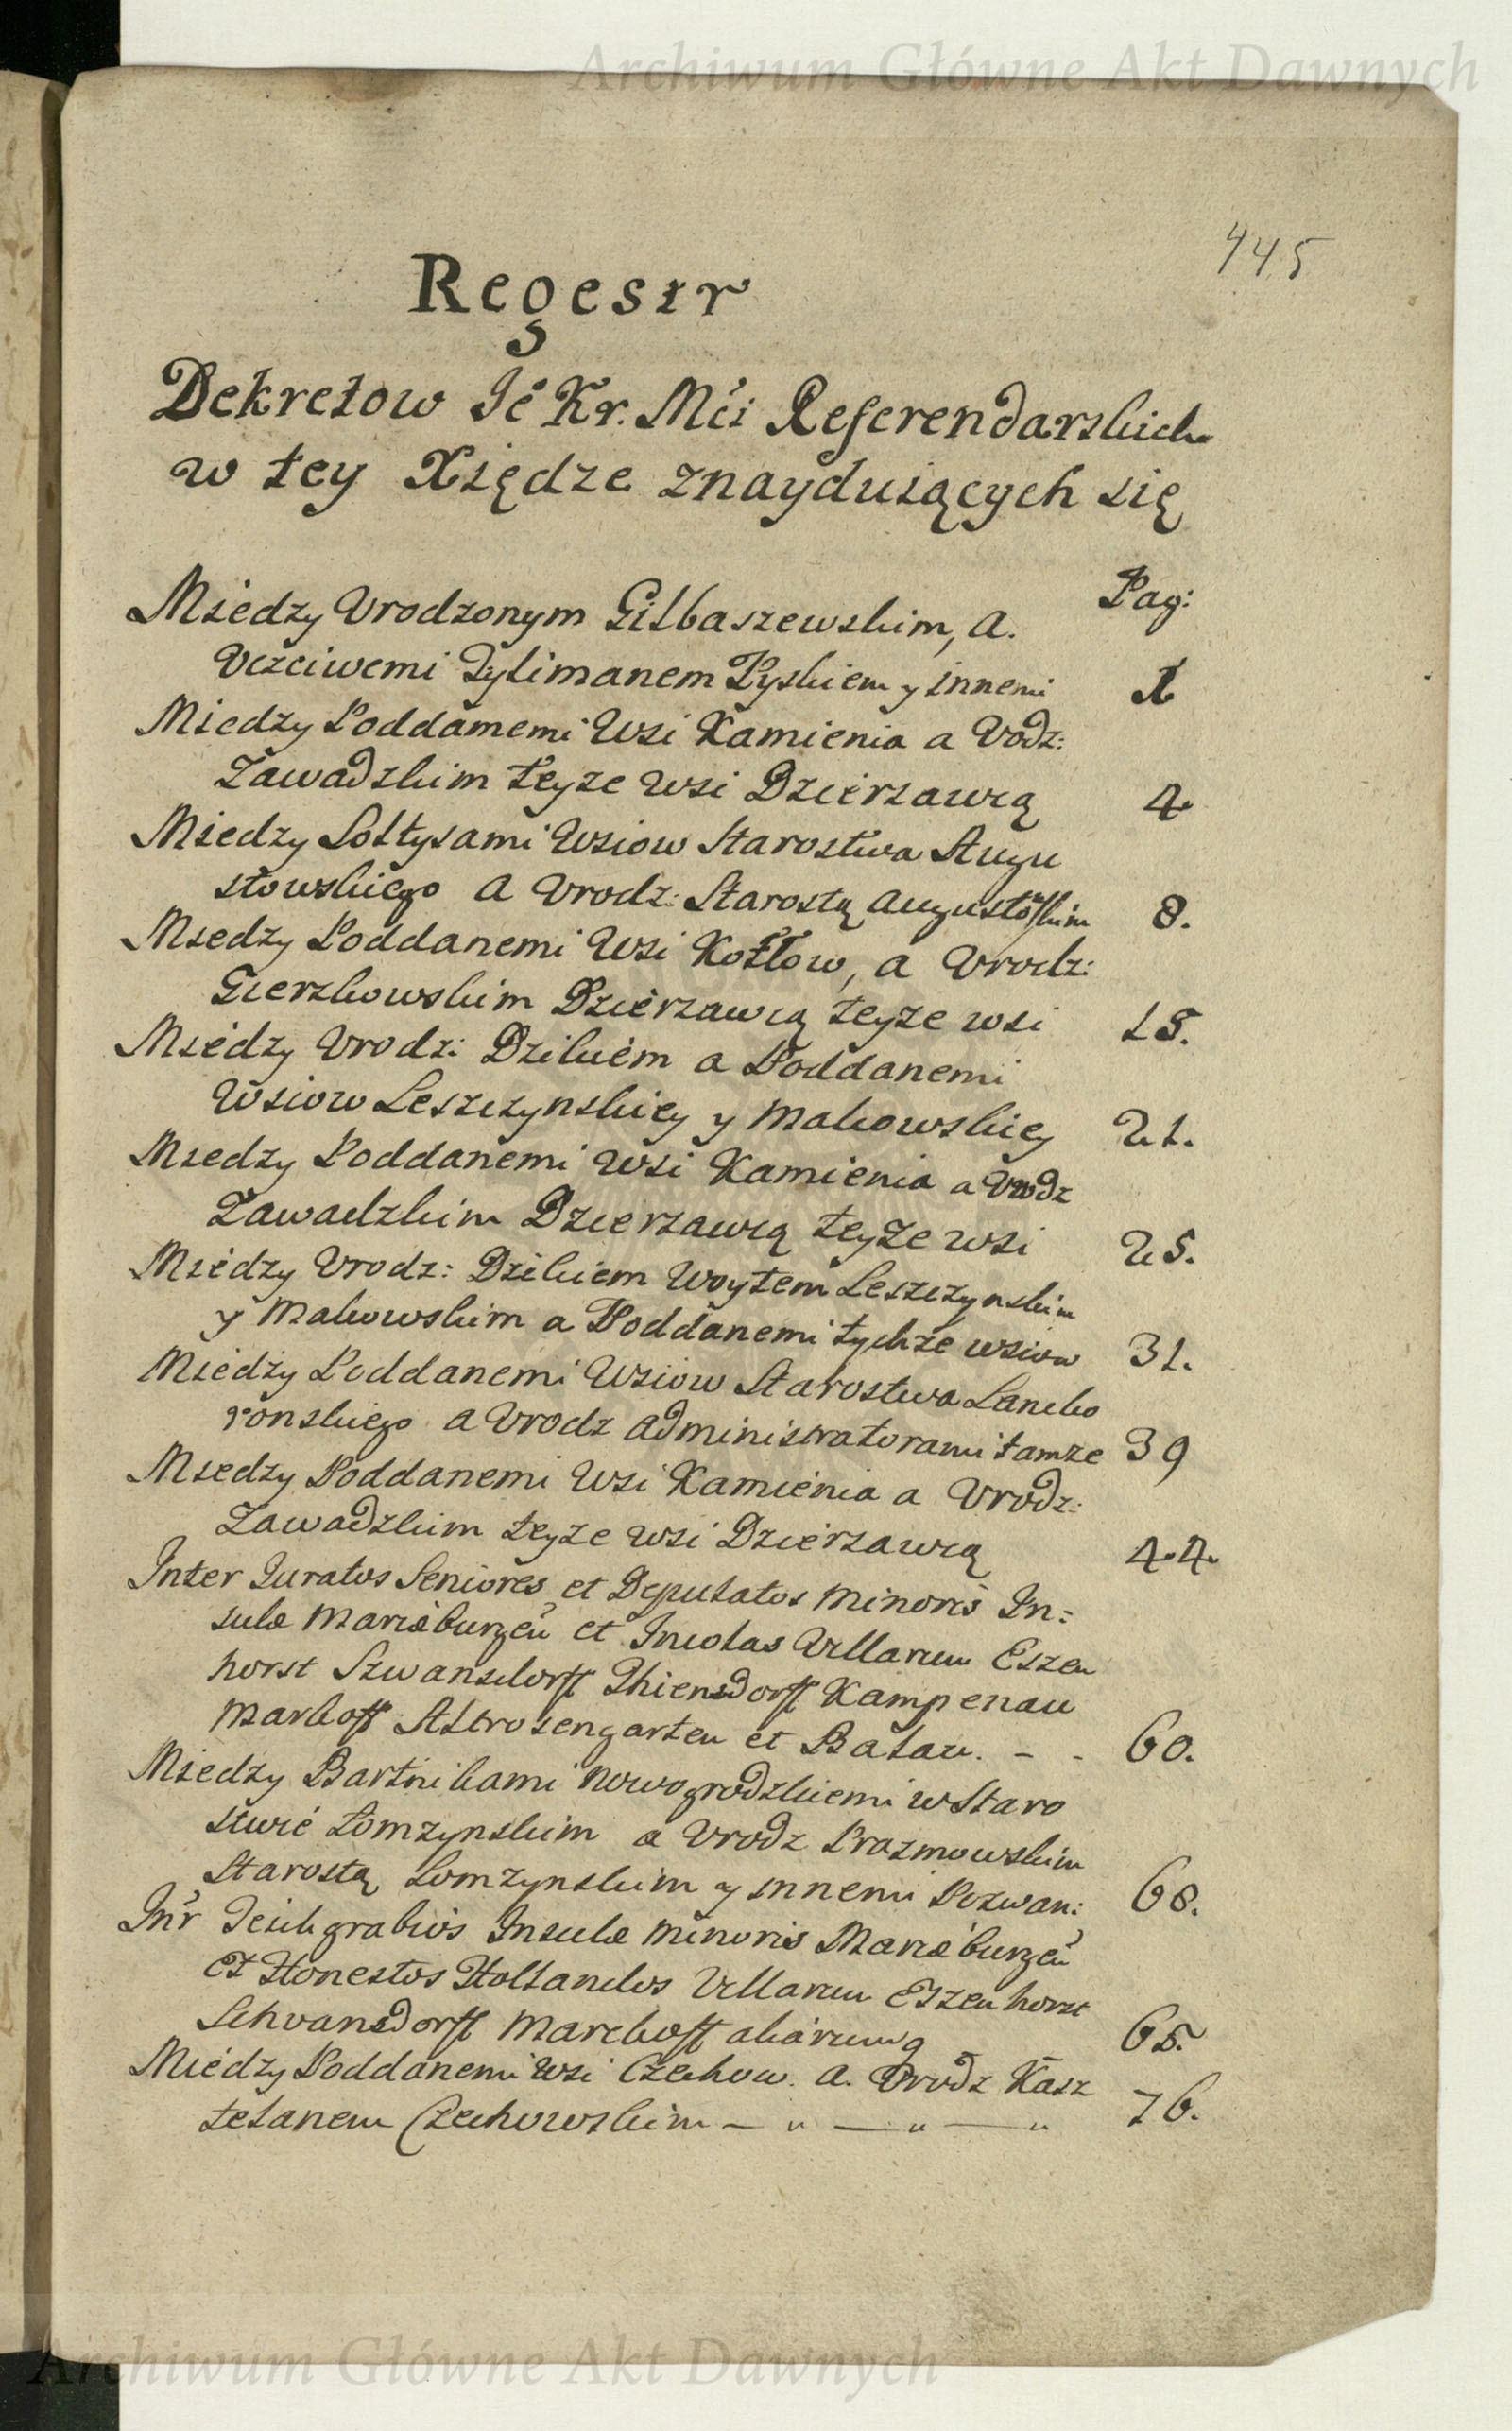 Archiwum Główne Akt Dawnych
445
Regestr
Dekretow Jė Kr. Mći Referendarskich
w tey Xiędze znayduiących się
Pag:
Miedzy Urodzonym Gilbaszewskim, a.
Uczciwemi Tylimanem Tyskiem y innemi 1
Miedzy Poddanemi Wsi Kamienia a Vrodz:
Zawadzkim teyze wsi Dzierzawcą 4
Miedzy Soltysami Wsiow Starostwa Augu
stowskiego a Vrodz: Starostą Augustowskim 8.
Miedzy Poddanemi Wsi Kotłow, a Vrodz:
Gierzkowskim Dzierzawcą teyze wsi 15.
Miedzy Vrodz: Dzikiem a Poddanemi
Wsiow Leszczynskiey y Makowskiey 21.
Miedzy Poddanemi Wsi Kamienia a Vrodz
Zawadzkim Dzierzawcą teyze wsi 25.
Miedzy Vrodz: Dzikiem Woytem Leszczynskim
y Makowskim a Poddanemi tychze wsiow 31.
Miedzy Poddanemi Wsiow Starostwa Lancko
ronskiego a Vrodz administratorami tamze 39
Miedzy Poddanemi Wsi Kamienia a Vrodz:
Zawadzkim teyze wsi Dzierzawcą 44
Inter Iuratos Seniores et Deputatos Minoris In:
sulæ Mariæburgeñ et Incolas Villarum Eszen
horst Szwansdorff Thiensdorff Kampenau
Markoff Altrosengarten et Balau. - - 60.
Miedzy Bartnikami Nowogrodzkiemi w Staro
stwie Łomzynskim a Vrodz Prazmowskim
Starostą Lomzynskim y innemi Pozwan: 68.
Inr Teichgrabios Insulæ minoris Mariæburgeñ
et Honestos Hollandos Villarum Eszenhorst
Schvansdorff Markhoff aliarumq 65.
Miedzy Poddanemi Wsi Czechow. a. Vrodz Kasz
telanem Czechowskim — " — " — " 76.
Archiwum Główne Akt Dawnych